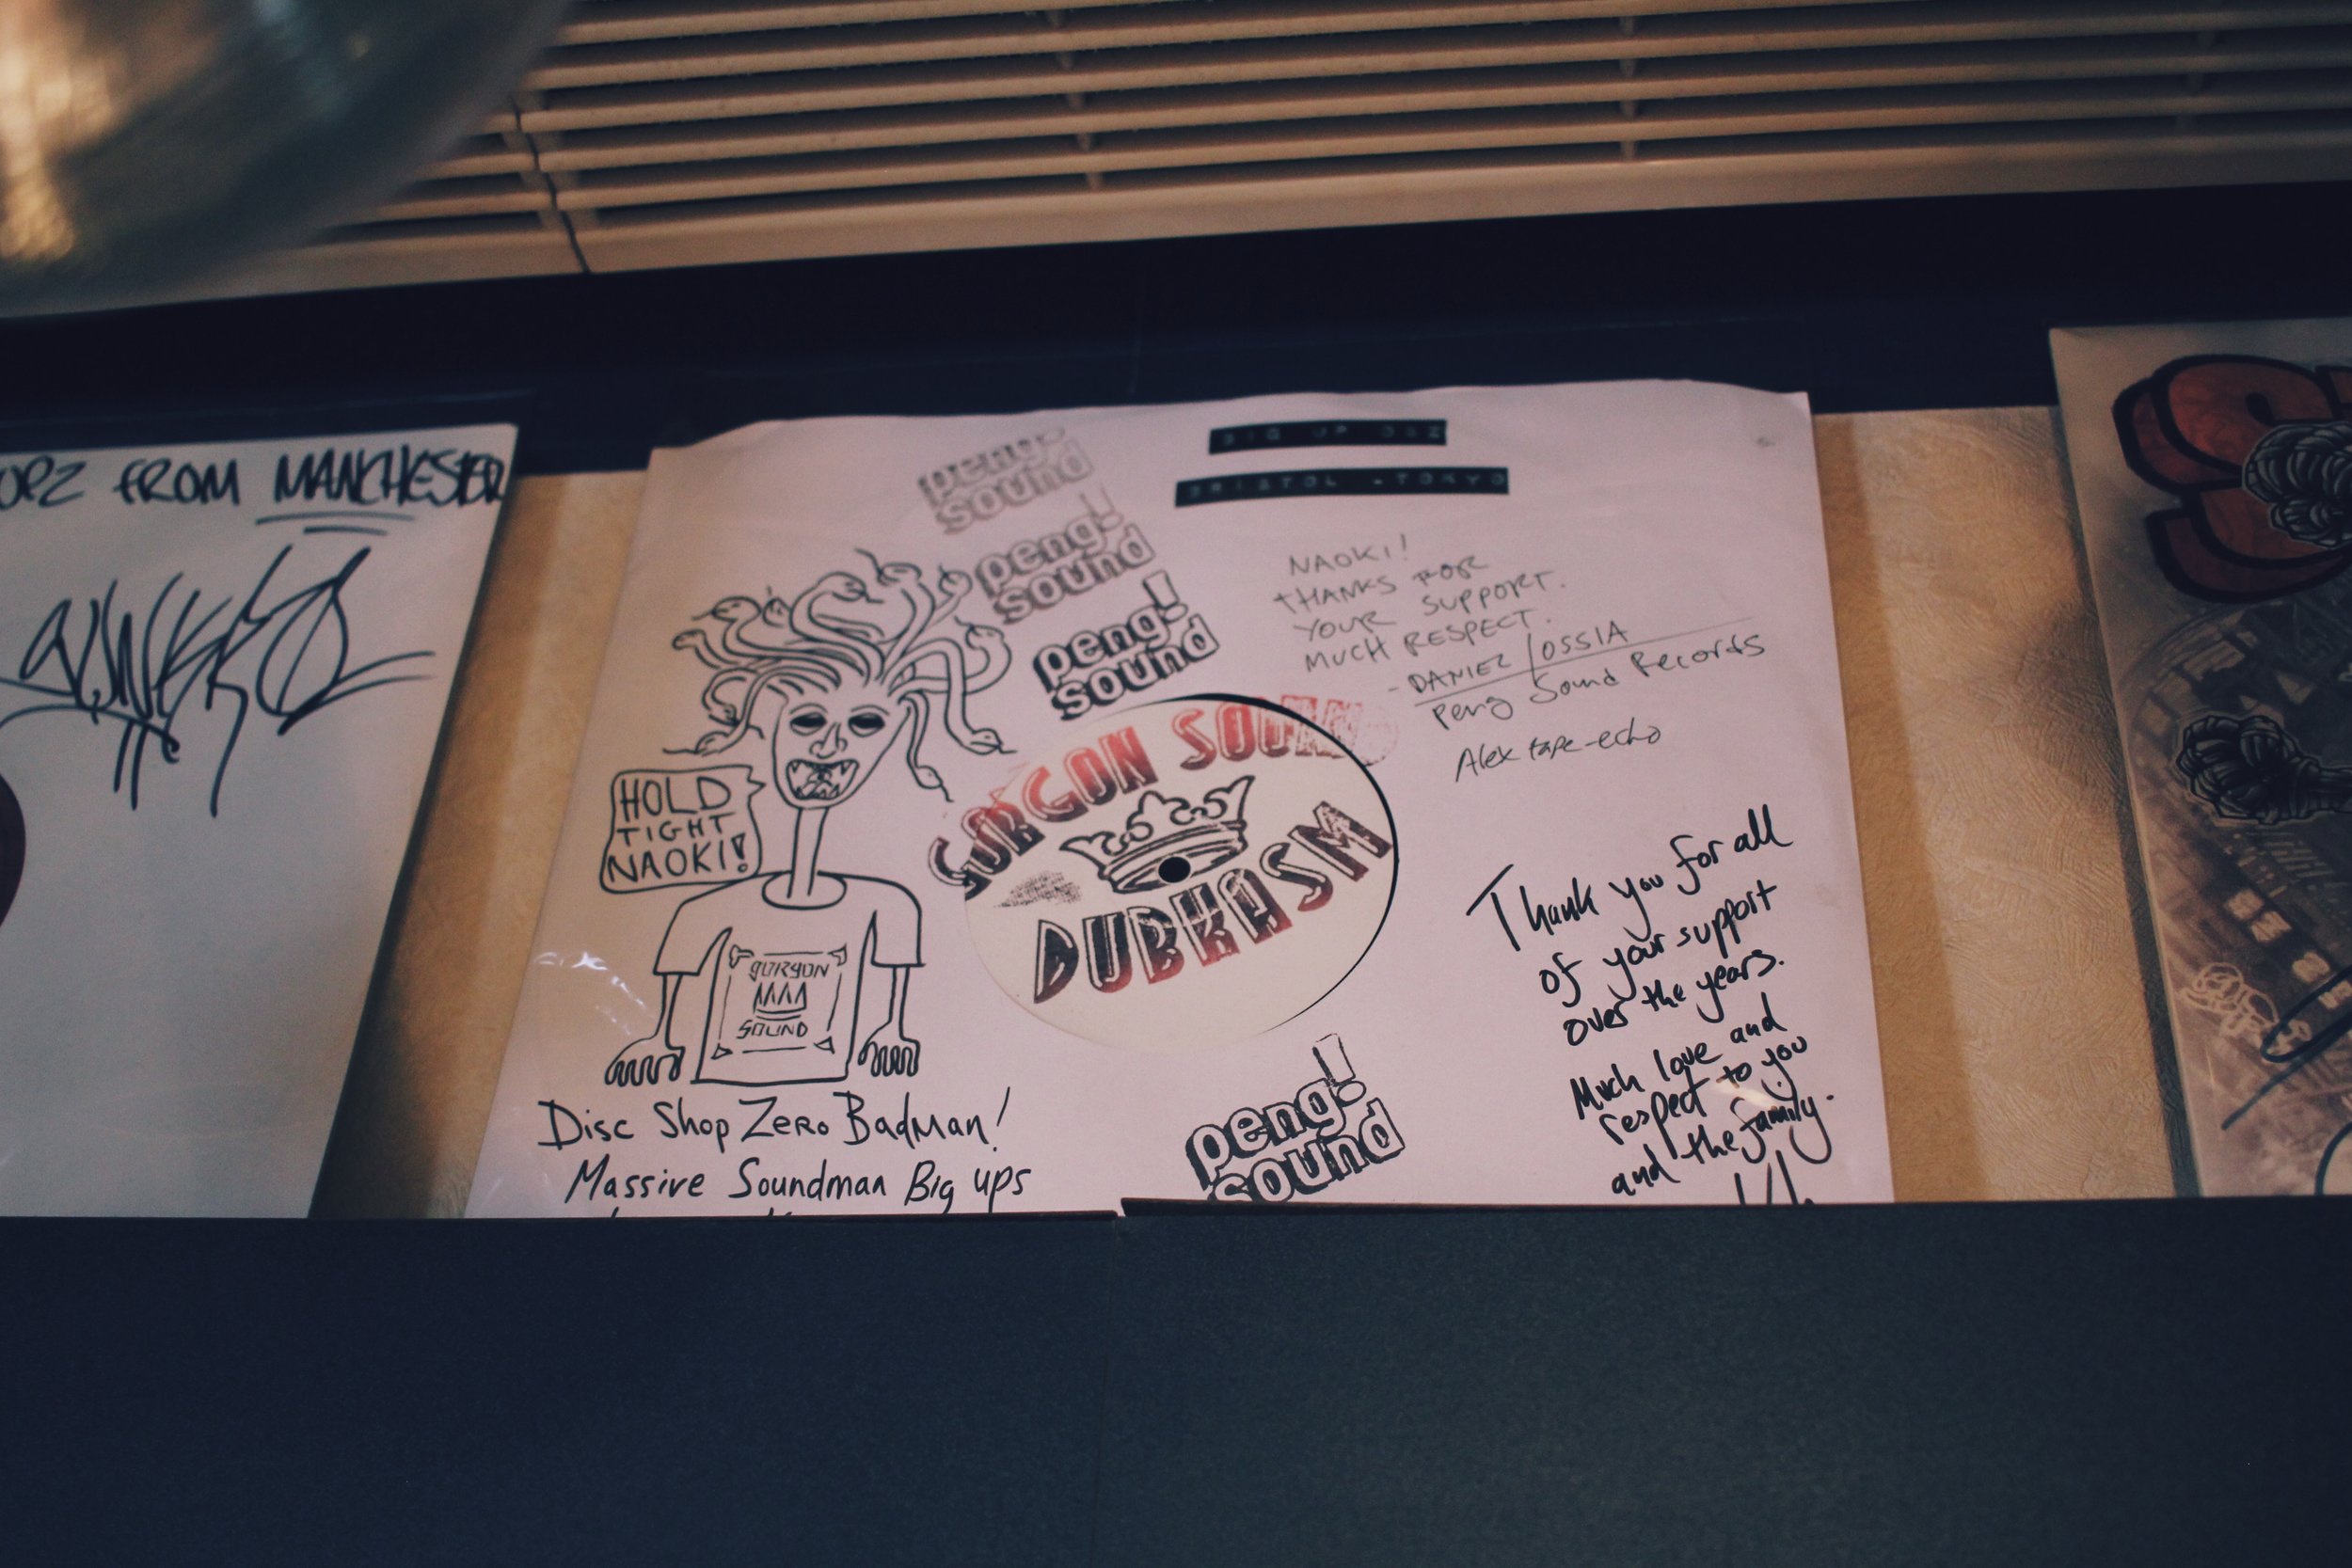 UPZ FROM MANCHESTER
peng!
sound
peng!
sound
peng!
sound
BIG UP DSZ
BRISTOL - TOKYO
NAOKI!
THANKS FOR
YOUR SUPPORT.
MUCH RESPECT.
- DANIEL / OSSIA
Peng Sound Records
Alex tape-echo
HOLD
TIGHT
NAOKI!
GORGON SOUND
DUBKASM
GORGON
SOUND
Thank you for all
of your support
over the years.
Much love and
respect to you
and the family.
Disc Shop Zero Badman!
Massive Soundman Big ups
peng!
sound